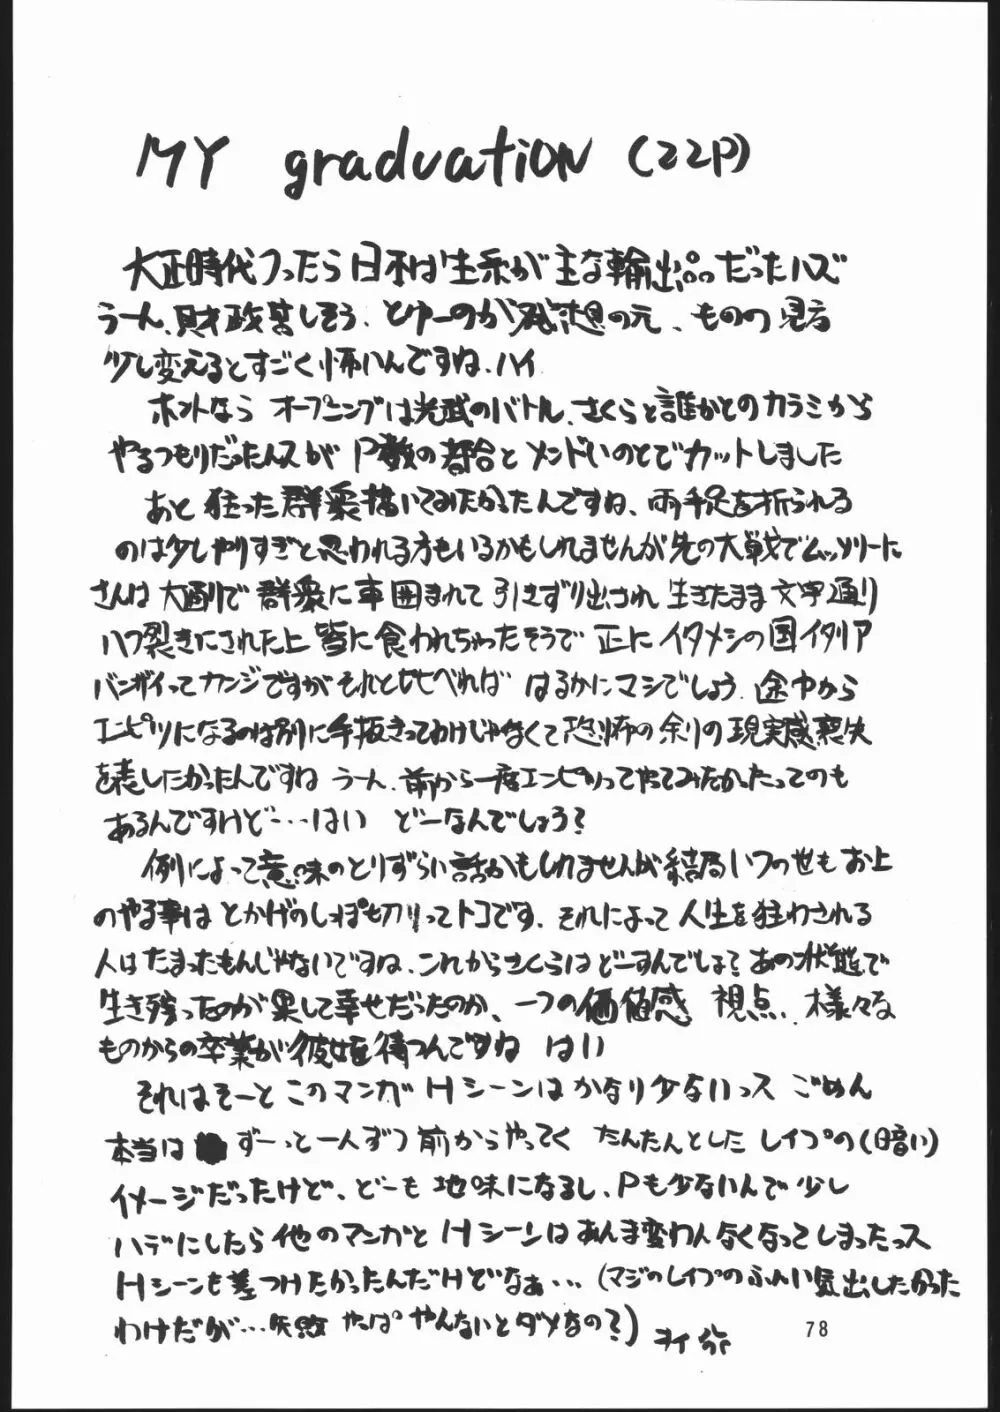 MY graduation (22P)
大正時代つったら日本は生糸が主な輸出品だったハズ
うーん、財政苦しそう、とゆーのが発想の元、ものの見方
少し変えるとすごく怖いんですね、ハイ
ホントなら オープニングは光武のバトル、さくらと誰かとのカラミから
やるつもりだったんスが P数の都合と メンドいのとでカットしました
あと 狂った群衆描いてみたかったんですね、両手足を折られる
のは少しやりすぎと思われる方もいるかもしれませんが先の大戦でムッソリーに
さんは 大通りで 群衆に車囲まれて 引きずり出され 生きたまま文字通り
ハツ裂きにされた上 皆に食われちゃったそうで 正に イタメシの国イタリア
バンザイってカンジですが それと比べれば はるかにマシでしょう、途中から
エンピツになるのは別に手抜きってわけじゃなくて恐怖の余りの現実感喪失
を表したかったんですね うーん、前から一度エンピツってやってみたかったってのも
あるんですけどー…はい どーなんでしょう?
例によって意味のとりずらい話かもしれませんが 結局いつの世も お上
のやる事は とかげのしっぽ切りってトコです、それによって 人生を狂わされる
人はたまったもんじゃないですね、これからさくらはどーすんでしょ? あの状態で
生き残ったのが果して幸せだったのか、一つの価値感 視点、様々な
ものからの卒業が彼女を待つんですね はい
それはそーと このマンガ Hシーンは かなり少ないっス ごめん
本当は ずーっと一人ずつ 前からやってく たんたんとした レイプの(暗い)
イメージだったけど、どーも 地味になるし、Pも少ないんで 少し
ハデにしたら 他のマンガと Hシーンはあんま変わんなくなってしまったっス
Hシーンも差つけたかったんだけどなぁ…(マジのレイプのふんい気出したかった
わけだが…失敗 やっぱ やんないとダメなの?)
78